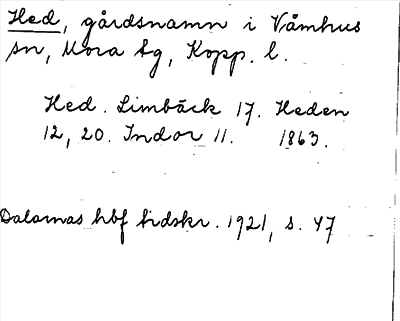 Hed, gårdsnamn i Våmhus
sn, Mora tg, Kopp. l.
Hed. Limbäck 17. Heden
12, 20. Indor 11. 1863.
Dalarnas hbf tidskr. 1921, s. 47